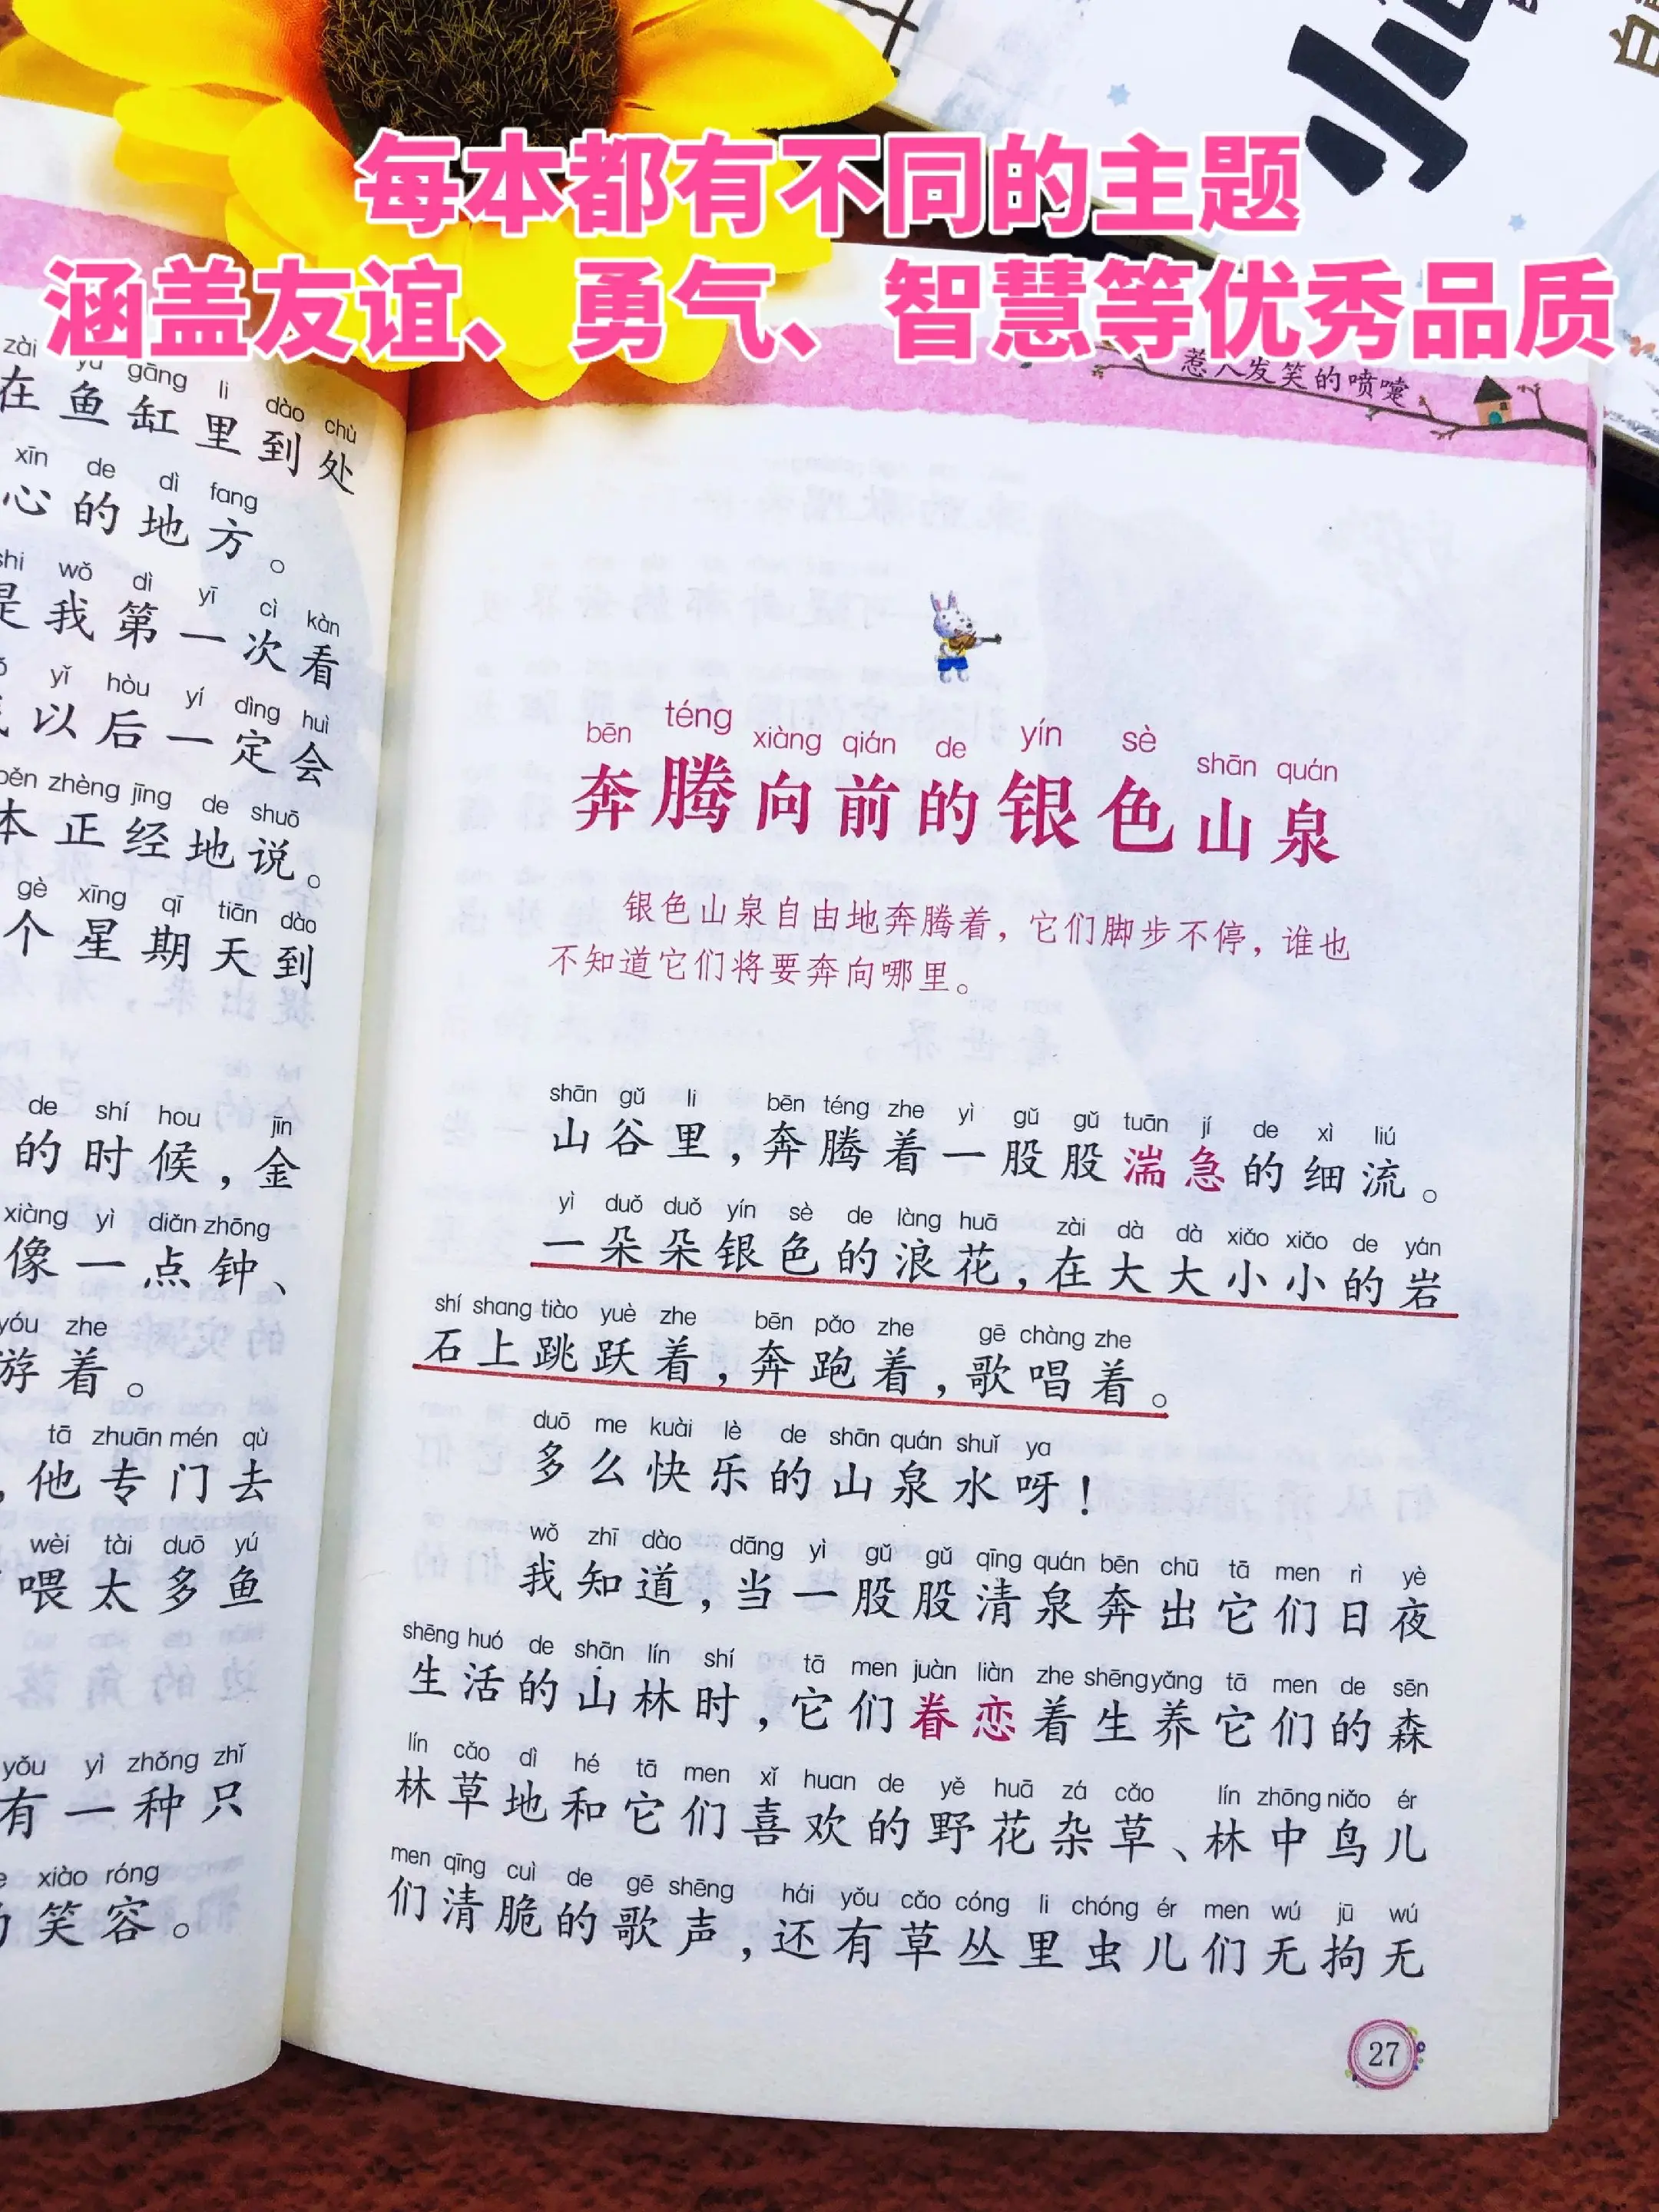 每本都有不同的主题
涵盖友谊、勇气、智慧等优秀品质
惹人发笑的喷嚏
zài yú gāng li dào chù
在鱼缸里到处
xīn de dì fang
心的地方。
shì wǒ dì yī cì kàn
是我第一次看
yǐ hòu yí dìng huì
以后一定会
běn zhèng jīng de shuō
本正经地说。
gè xīng qī tiān dào
个星期天到
de shí hou jīn
的时候，金
xiàng yì diǎn zhōng
像一点钟、
yóu zhe
游着。
tā zhuān mén qù
，他专门去
wèi tài duō yú
喂太多鱼
yǒu yì zhǒng zhǐ
有一种只
xiào róng
笑容。
bēn téng xiàng qián de yín sè shān quán
奔腾向前的银色山泉
银色山泉自由地奔腾着，它们脚步不停，谁也
不知道它们将要奔向哪里。
shān gǔ li bēn téng zhe yì gǔ gǔ tuān jí de xì liú
山谷里，奔腾着一股股湍急的细流。
yì duǒ duǒ yín sè de làng huā zài dà dà xiǎo xiǎo de yán
一朵朵银色的浪花，在大大小小的岩
shí shang tiào yuè zhe bēn pǎo zhe gē chàng zhe
石上跳跃着，奔跑着，歌唱着。
duō me kuài lè de shān quán shuǐ ya
多么快乐的山泉水呀！
wǒ zhī dào dāng yì gǔ gǔ qīng quán bēn chū tā men rì yè
我知道，当一股股清泉奔出它们日夜
shēng huó de shān lín shí tā men juàn liàn zhe shēng yǎng tā men de sēn
生活的山林时，它们眷恋着生养它们的森
lín cǎo dì hé tā men xǐ huan de yě huā zá cǎo lín zhōng niǎo ér
林草地和它们喜欢的野花杂草、林中鸟儿
men qīng cuì de gē shēng hái yǒu cǎo cóng li chóng ér men wú jū wú
们清脆的歌声，还有草丛里虫儿们无拘无
27